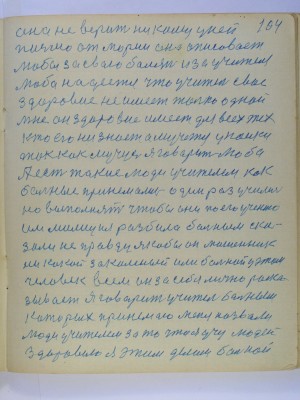 она не верит никому у ней 154
письмо от марии она описовает
Люба за своею болезн из за учителя
люба надеется что учител своє
здаровие не имеет толко одной
мне он здаровие имеет для всех тех
кто его низнает ему учу у науки
так как мучус я говарит люба
А ест такие люди учителем как
болные принемали один раз учил и
но выполнят чтобы они по его учению
им милиция разбила болным ска-
зали не правду якобы он мошенник
ни какой закаленый или болной у том
человек всем он за себя лично раска
зывает Я говарит учител болным
каторых принемаю меня назвали
люди учителем за то что я учу людей
здаровию я этим делом болной